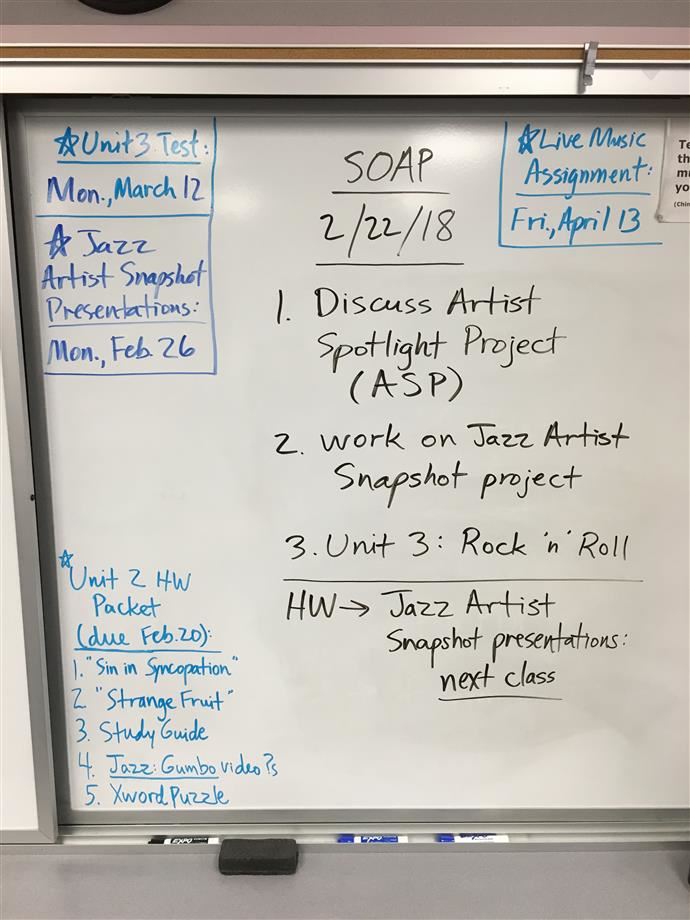 ☆Unit 3 Test:
Mon., March 12
☆ Jazz
Artist Snapshot
Presentations:
Mon., Feb. 26
SOAP
2/22/18
☆Live Music
Assignment:
Fri., April 13
1. Discuss Artist
Spotlight Project
(ASP)
2. work on Jazz Artist
Snapshot project
3. Unit 3: Rock 'n' Roll
HW → Jazz Artist
Snapshot presentations:
next class
☆
Unit 2 HW
Packet
(due Feb. 20):
1. "Sin in Syncopation"
2 "Strange Fruit"
3. Study Guide
4. Jazz: Gumbo video ?s
5. Xword Puzzle
EXPO
EXPO
EXPO